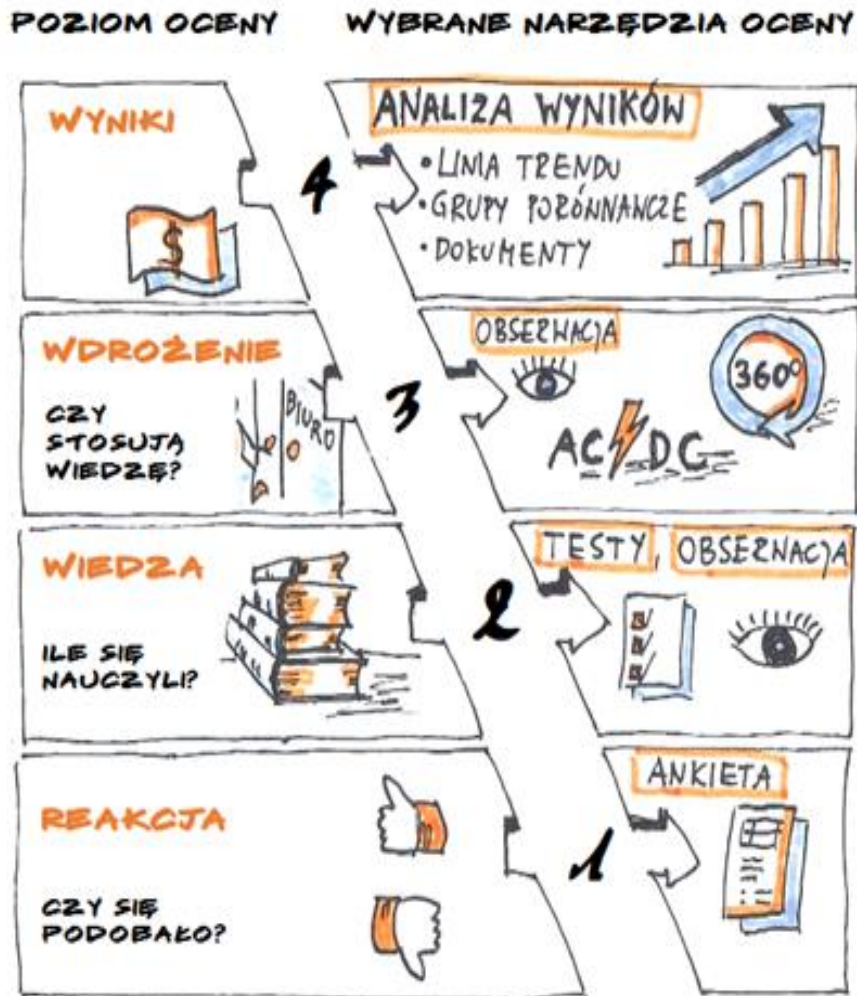 POZIOM OCENY WYBRANE NARZĘDZIA OCENY
WYNIKI
$
4
ANALIZA WYNIKÓW
• LINIA TRENDU
• GRUPY PORÓNNAWCZE
• DOKUMENTY
WDROŻENIE
CZY
STOSUJĄ
WIEDZĘ?
BIURO
3
OBSERWACJA
360°
AC DC
WIEDZA
ILE SIĘ
NAUCZYLI?
2
TESTY, OBSERWACJA
REAKCJA
CZY SIĘ
PODOBAŁO?
1
ANKIETA